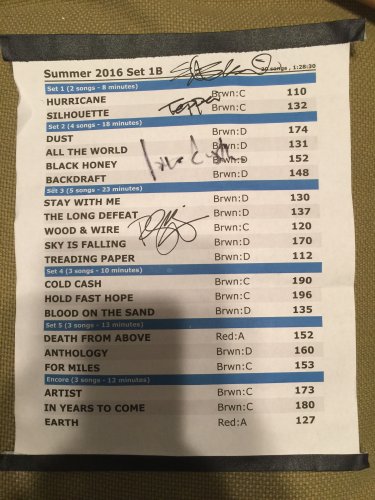 Summer 2016 Set 1B songs, 1:28:30
Set 1 (2 songs - 8 minutes)
HURRICANE Brwn:C 110
SILHOUETTE Brwn:C 132
Set 2 (4 songs - 18 minutes)
DUST Brwn:D 174
ALL THE WORLD Brwn:D 131
BLACK HONEY Brwn:D 152
BACKDRAFT Brwn:D 148
Set 3 (5 songs - 23 minutes)
STAY WITH ME Brwn:D 130
THE LONG DEFEAT Brwn:D 137
WOOD & WIRE Brwn:C 120
SKY IS FALLING Brwn:D 170
TREADING PAPER Brwn:D 112
Set 4 (3 songs - 10 minutes)
COLD CASH Brwn:C 190
HOLD FAST HOPE Brwn:C 196
BLOOD ON THE SAND Brwn:D 135
Set 5 (3 songs - 13 minutes)
DEATH FROM ABOVE Red:A 152
ANTHOLOGY Brwn:D 160
FOR MILES Brwn:C 153
Encore (3 songs - 12 minutes)
ARTIST Brwn:C 173
IN YEARS TO COME Brwn:C 180
EARTH Red:A 127